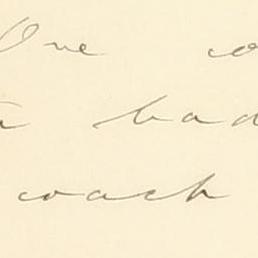 One
a bad
coach